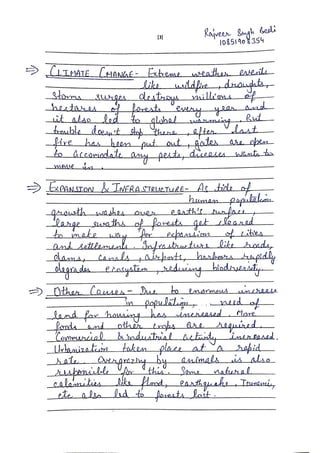 Rajveer Singh Bedi
10851908354
|3|
⇒ CLIMATE CHANGE- Extreme weather events
like wildfire, droughts,
storms surges destroys millions of
hectares of forests every year and
it also led to global warming. But
trouble doesn't stop there, after last
fire has been put out, gates are open
to accomodate any pests, diseases wants to
move in.
⇒ EXPANSION & INFRASTRUCTURE- As tide of
human population
growth washes over earth's surface,
large swaths of forests get cleared
to make way for expansion of cities
and settlements. Infrastructure like roads,
dams, canals, airports, harbors rapidly
degrades ecosystem, reducing biodiversity.
⇒ Other Causes - Due to enormous increase
in population, need of
land for housing has increased. More
foods and other crops are required.
Commercial & industrial activity increased.
Urbanization taken place at a rapid
rate. Overgrazing by animals is also
responsible for this. Some natural
calamities like flood, earthquake, Tsunami,
etc. also led to forests lost.